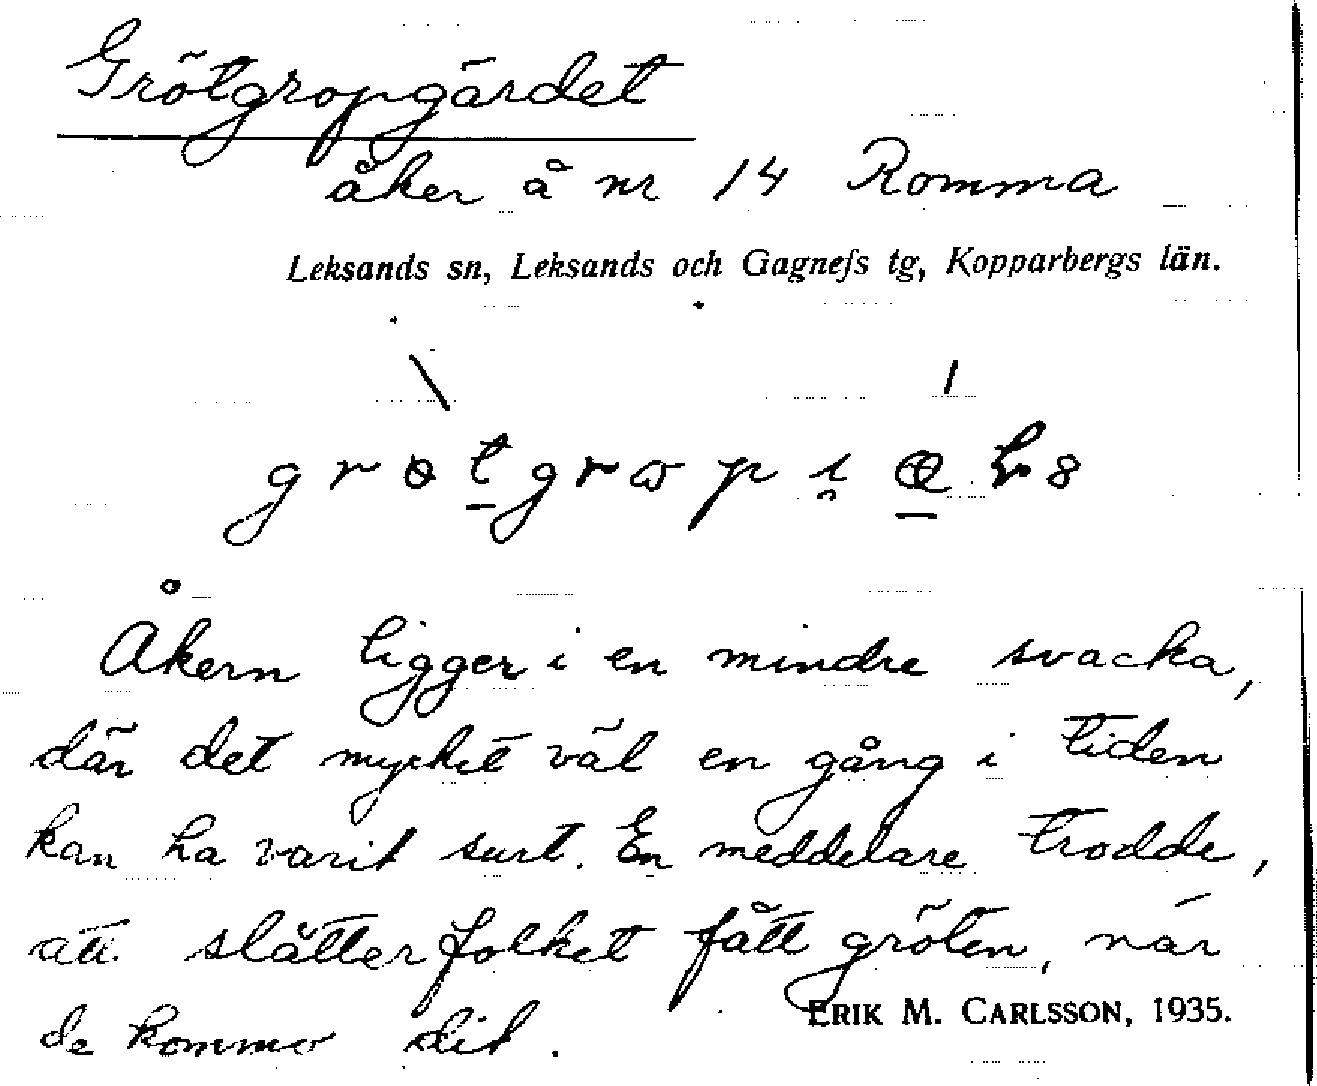 Grötgropgärdet
åker å nr 14 Romma
Leksands sn, Leksands och Gagnefs tg, Kopparbergs län.
Åkern ligger i en mindre svacka,
där det mycket väl en gång i tiden
kan ha varit surt. En meddelare trodde,
att slåtterfolket fått gröten, när
de kommo dit.
ERIK M. CARLSSON, 1935.